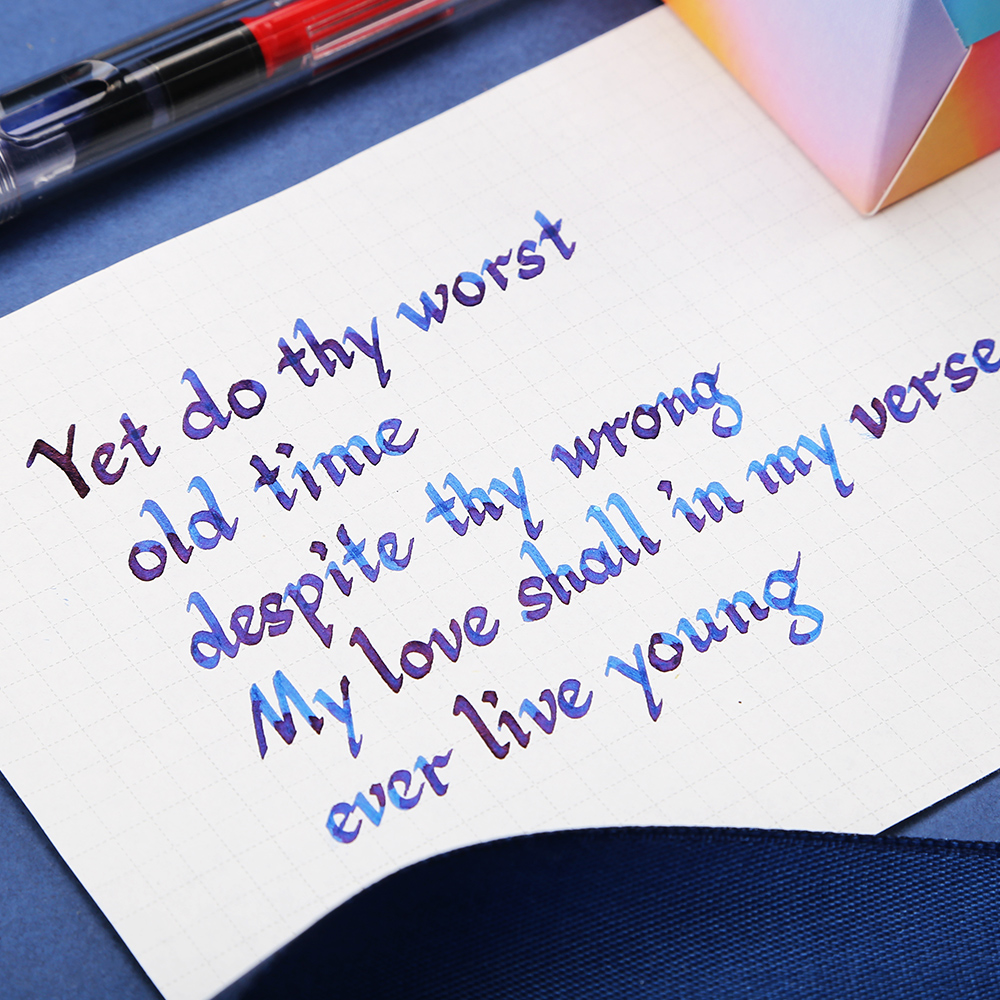 Yet do thy worst
old time
despite thy wrong
My love shall in my verse
ever live young